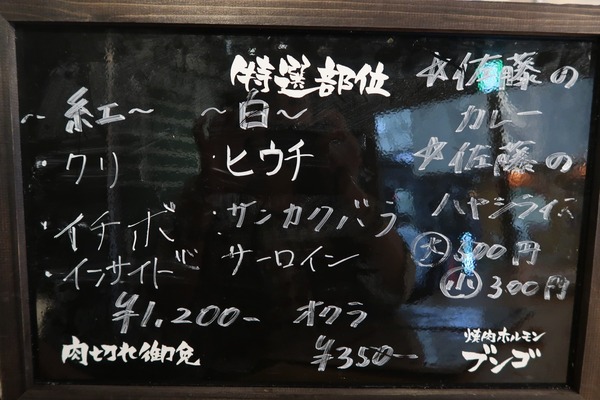 特選部位
~紅~
・クリ
・イチボ
・インサイド
~白~
・ヒウチ
・サンカクバラ
・サーロイン
¥1,200-
オクラ
¥350-
☆佐藤の
カレー
☆佐藤の
ハヤシライス
大 500円
小 300円
肉切れ御免
焼肉ホルモン
ブンゴ